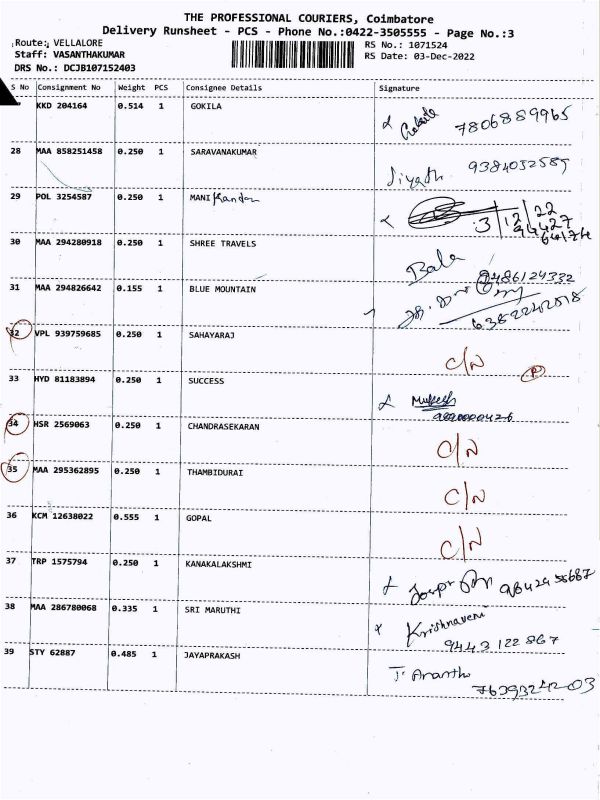 THE PROFESSIONAL COURIERS, Coimbatore
Delivery Runsheet - PCS - Phone No.:0422-3505555 - Page No.:3
Route: VELLALORE RS No.: 1071524
Staff: VASANTHAKUMAR RS Date: 03-Dec-2022
DRS No.: DCJB107152403
S No Consignment No Weight PCS Consignee Details Signature
KKD 204164 0.514 1 GOKILA Gokila 7806889965
28 MAA 858251458 0.250 1 SARAVANAKUMAR 9384032589
29 POL 3254587 0.250 1 MANI Kandan 3/12/22
94427
64174
30 MAA 294280918 0.250 1 SHREE TRAVELS Bala 9486124332
31 MAA 294826642 0.155 1 BLUE MOUNTAIN 6382242518
32 VPL 939759685 0.250 1 SAHAYARAJ C/N
33 HYD 81183894 0.250 1 SUCCESS Mukesh
34 HSR 2569063 0.250 1 CHANDRASEKARAN C/N
35 MAA 295362895 0.250 1 THAMBIDURAI C/N
36 KCM 12638022 0.555 1 GOPAL C/N
37 TRP 1575794 0.250 1 KANAKALAKSHMI 9842955687
38 MAA 286780068 0.335 1 SRI MARUTHI Krishnaveni
9443122867
39 STY 62887 0.485 1 JAYAPRAKASH J. Anantha
7639324203